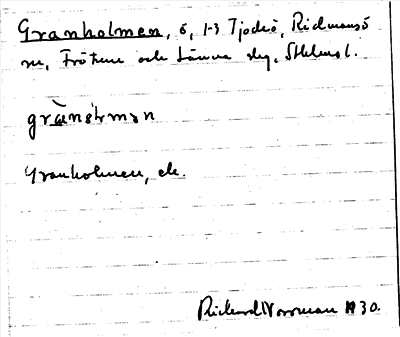 Granholmen, ö, 1-3 Tjockö, Ridmansö
sn, Frötuna och Länna skg, Sthlms l.
grànɑ̀lmən
Granholmen, ck.
Rickard Norrman 1930.